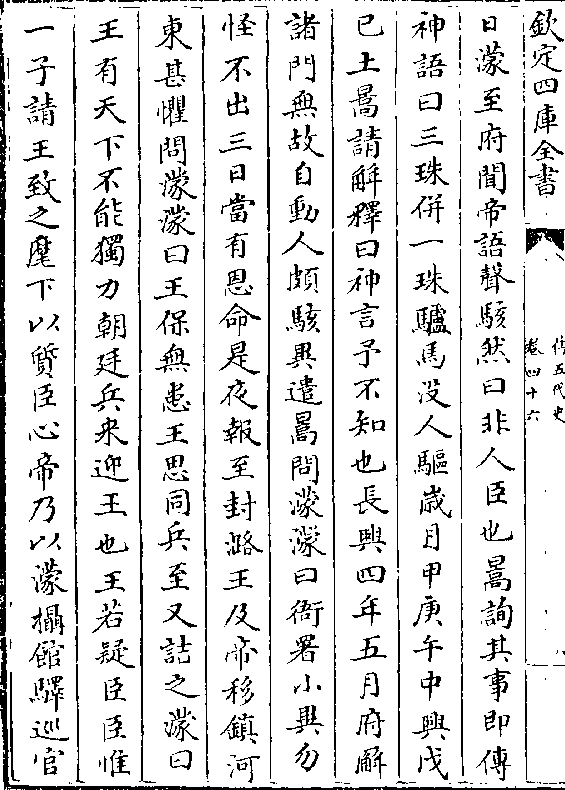 欽定四庫全書
舊五代史
卷四十六
日濛至府聞帝語聲駭然曰非人臣也暠詢其事即傳
神語曰三珠併一珠驢馬沒人驅歲月甲庚午中興戊
已土暠請解釋曰神言予不知也長興四年五月府廨
諸門無故自動人頗駭異遣暠問濛濛曰衙署小異勿
怪不出三日當有恩命是夜報至封潞王及帝移鎮河
東甚懼問濛濛曰王保無患王思同兵至又詰之濛曰
王有天下不能獨力朝廷兵來迎王也王若疑臣臣惟
一子請王致之麾下以質臣心帝乃以濛攝館驛巡官